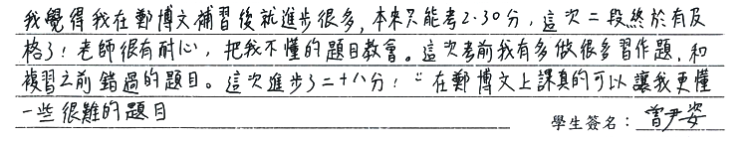 我覺得我在鄭博文補習後就進步很多,本來只能考2.30分,這次二段終於有及
格了!老師很有耐心,把我不懂的題目教會。這次考前我有多做很多習作題,和
複習之前錯過的題目。這次進步了二十八分!¨在鄭博文上課真的可以讓我更懂
一些很難的題目
學生簽名:曾尹姿